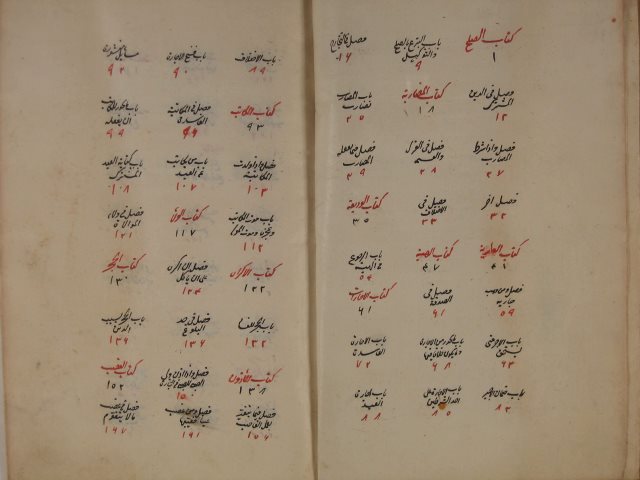 كتاب الصلح
١
باب التبرع بالصلح
والتوكيل
٩
فصل في التخارج
١٤
فصل في الدين
المشترك
١٢
كتاب المضاربة
١٨
باب المضارب
يضارب
٢٥
فصل واذا شرط
المضارب
٢٧
فصل في العزل
والقسمة
٢٨
فصل فيما يفعله
المضارب
٢٩
فصل اخر
٣٢
فصل في
الاختلاف
٣٣
كتاب الوديعة
٣٥
كتاب العارية
٤١
كتاب الهبة
٤٧
باب الرجوع
في الهبة
٥٤
فصل ومن وهب
جارية
٥٩
فصل في
الصدقة
٦١
كتاب الاجارات
٦١
باب الاجر متى
يستحق
٦٣
باب ما يجوز من الاجارة
وما يكون خلافا فيها
٦٨
باب الاجارة
الفاسدة
٧٢
باب ضمان الاجير
٨٢
باب الاجارة على
احد الشرطين
٨٥
باب اجارة
العبد
٨٨
باب الاختلاف
٨٩
باب فسخ الاجارة
٩٠
مسائل منثورة
٩٢
كتاب المكاتب
٩٣
فصل في الكتابة
الفاسدة
٩٤
باب ما يجوز للمكاتب
ان يفعله
٩٩
فصل واذا ولدت
المكاتبة
١٠٣
باب من يكاتب
عن العبد
١٠٧
باب كتابة العبد
المشترك
١٠٨
باب موت المكاتب
وعجزه وموت المولى
١١٢
كتاب الولاء
١١٧
فصل في ولاء
الموالاة
١٢١
كتاب الاكراه
١٢٢
فصل وان اكره
على ان ياكل
١٢٤
كتاب الحجر
١٣٠
باب الحجر للفساد
١٣٢
فصل في حد
البلوغ
١٣٦
باب الحجر بسبب
الدين
١٣٦
كتاب الماذون
١٣٨
فصل واذا اذن ولي
١٥٠
كتاب الغصب
١٥٢
فصل فيما يتغير
بفعل الغاصب
١٥٦
فصل ومن غصب
١٦١
فصل في غصب
ما لا يتقوم
١٦٧